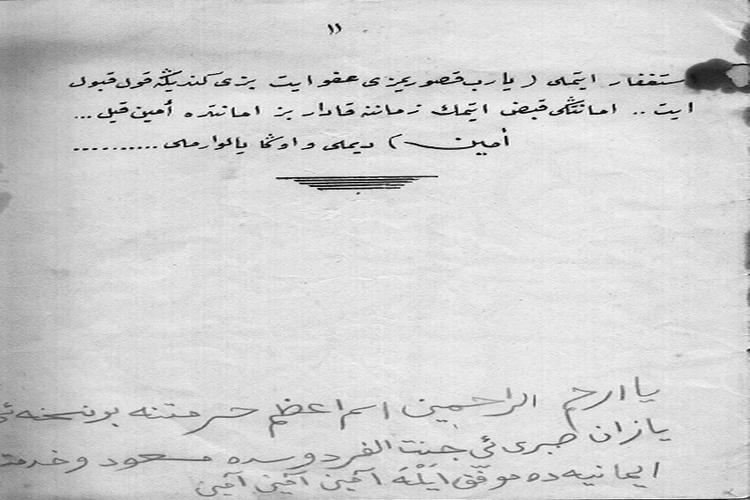 ١١
استغفار ايتملى ( يارب قصوريمزى عفو ايت بزى كنديڭه قول قبول
ايت .. امانتڭى قبض ايتمك زماننه قادار بز امانتده أمين قيل ...
أمين ) ديملى و اوڭا يالوارملى ..........
يا ارحم الراحمين اسم اعظم حرمتنه بو نسخه ئى
يازان صبرى ئى جنت الفردوسده مسعود و خدمت
ايمانيه ده موفّق اَيْلَه آمين آمين آمين